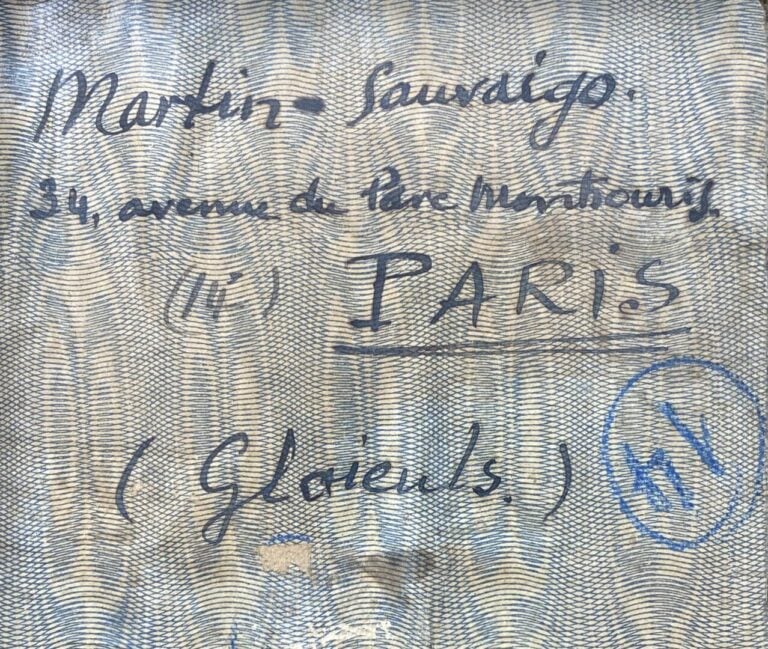 Martin - Sauvaigo.
34, avenue du Parc Montsouris.
(14ᵉ) PARIS
(Glaïeuls.)